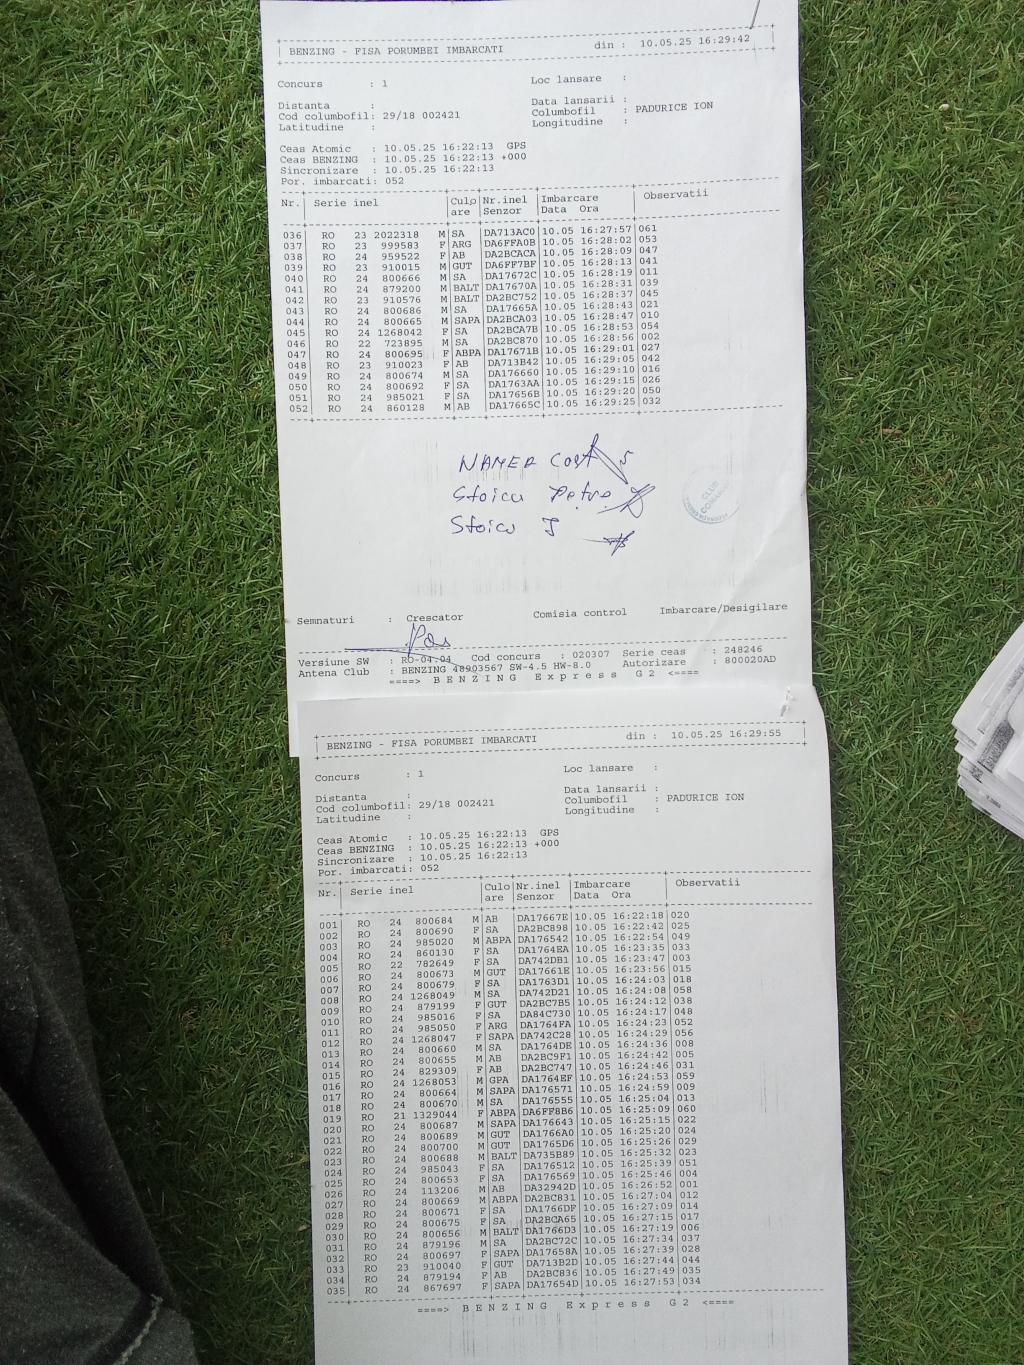 BENZING - FISA PORUMBEI IMBARCATI din : 10.05.25 16:29:42
Concurs : 1 Loc lansare :
Distanta : Data lansarii :
Cod columbofil: 29/18 002421 Columbofil : PADURICE ION
Latitudine : Longitudine :
Ceas Atomic : 10.05.25 16:22:13 GPS
Ceas BENZING : 10.05.25 16:22:13 +000
Sincronizare : 10.05.25 16:22:13
Por. imbarcati: 052
Nr. Serie inel Culo Nr.inel Imbarcare Observatii
are Senzor Data Ora
036 RO 23 2022318 M SA DA713AC0 10.05 16:27:57 061
037 RO 23 999583 F ARG DA6FFA0B 10.05 16:28:02 053
038 RO 24 959522 F AB DA2BCACA 10.05 16:28:09 047
039 RO 23 910015 M GUT DA6FF7BF 10.05 16:28:13 041
040 RO 24 800666 M SA DA17672C 10.05 16:28:19 011
041 RO 24 879200 M BALT DA17670A 10.05 16:28:31 039
042 RO 23 910576 M BALT DA2BC752 10.05 16:28:37 045
043 RO 24 800686 M SA DA17665A 10.05 16:28:43 021
044 RO 24 800665 M SAPA DA2BCA03 10.05 16:28:47 010
045 RO 24 1268042 F SA DA2BCA7B 10.05 16:28:53 054
046 RO 22 723895 M SA DA2BC870 10.05 16:28:56 002
047 RO 24 800695 F ABPA DA17671B 10.05 16:29:01 027
048 RO 23 910023 F AB DA713B42 10.05 16:29:05 042
049 RO 24 800674 M SA DA176660 10.05 16:29:10 016
050 RO 24 800692 F SA DA1763AA 10.05 16:29:15 026
051 RO 24 985021 F SA DA17656B 10.05 16:29:20 050
052 RO 24 860128 M AB DA17665C 10.05 16:29:25 032
Stoicu Petre
Stoicu I
CLUB
Semnaturi : Crescator Comisia control Imbarcare/Desigilare
Versiune SW : RO-04.04 Cod concurs : 020307 Serie ceas : 248246
Antena Club : BENZING 48903567 SW-4.5 HW-8.0 Autorizare : 800020AD
====> BENZING Express G2 <====
BENZING - FISA PORUMBEI IMBARCATI din : 10.05.25 16:29:55
Concurs : 1 Loc lansare :
Distanta : Data lansarii :
Cod columbofil: 29/18 002421 Columbofil : PADURICE ION
Latitudine : Longitudine :
Ceas Atomic : 10.05.25 16:22:13 GPS
Ceas BENZING : 10.05.25 16:22:13 +000
Sincronizare : 10.05.25 16:22:13
Por. imbarcati: 052
Nr. Serie inel Culo Nr.inel Imbarcare Observatii
are Senzor Data Ora
001 RO 24 800684 M AB DA17667E 10.05 16:22:18 020
002 RO 24 800690 F SA DA2BC898 10.05 16:22:42 025
003 RO 24 985020 M ABPA DA176542 10.05 16:22:54 049
004 RO 24 860130 F SA DA1764EA 10.05 16:23:35 033
005 RO 22 782649 F SA DA742DB1 10.05 16:23:47 003
006 RO 24 800673 M GUT DA17661E 10.05 16:23:56 015
007 RO 24 800679 F SA DA1763D1 10.05 16:24:03 018
008 RO 24 1268049 M SA DA742D21 10.05 16:24:08 058
009 RO 24 879199 F GUT DA2BC7B5 10.05 16:24:12 038
010 RO 24 985016 F SA DA84C730 10.05 16:24:17 048
011 RO 24 985050 F ARG DA1764FA 10.05 16:24:23 052
012 RO 24 1268047 F SAPA DA742C28 10.05 16:24:29 056
013 RO 24 800660 M SA DA1764DE 10.05 16:24:36 008
014 RO 24 800655 M AB DA2BC9F1 10.05 16:24:42 005
015 RO 24 829309 F AB DA2BC747 10.05 16:24:46 031
016 RO 24 1268053 M GPA DA1764EF 10.05 16:24:53 059
017 RO 24 800664 M SAPA DA176571 10.05 16:24:59 009
018 RO 24 800670 M SA DA176555 10.05 16:25:04 013
019 RO 21 1329044 F ABPA DA6FF8B6 10.05 16:25:09 060
020 RO 24 800687 M SAPA DA176643 10.05 16:25:15 022
021 RO 24 800689 M GUT DA1766A0 10.05 16:25:20 024
022 RO 24 800700 M GUT DA1765D6 10.05 16:25:26 029
023 RO 24 800688 M BALT DA735B89 10.05 16:25:32 023
024 RO 24 985043 F SA DA176512 10.05 16:25:39 051
025 RO 24 800653 F SA DA176569 10.05 16:25:46 004
026 RO 24 113206 M AB DA32942D 10.05 16:26:52 001
027 RO 24 800669 M ABPA DA2BC831 10.05 16:27:04 012
028 RO 24 800671 F SA DA1766DF 10.05 16:27:09 014
029 RO 24 800675 F SA DA2BCA65 10.05 16:27:15 017
030 RO 24 800656 M BALT DA1766D3 10.05 16:27:19 006
031 RO 24 879196 M SA DA2BC72C 10.05 16:27:34 037
032 RO 24 800697 F SAPA DA17658A 10.05 16:27:39 028
033 RO 23 910040 F GUT DA713B2D 10.05 16:27:44 044
034 RO 24 879194 F AB DA2BC836 10.05 16:27:49 035
035 RO 24 867697 F SAPA DA17654D 10.05 16:27:53 034
====> BENZING Express G2 <====